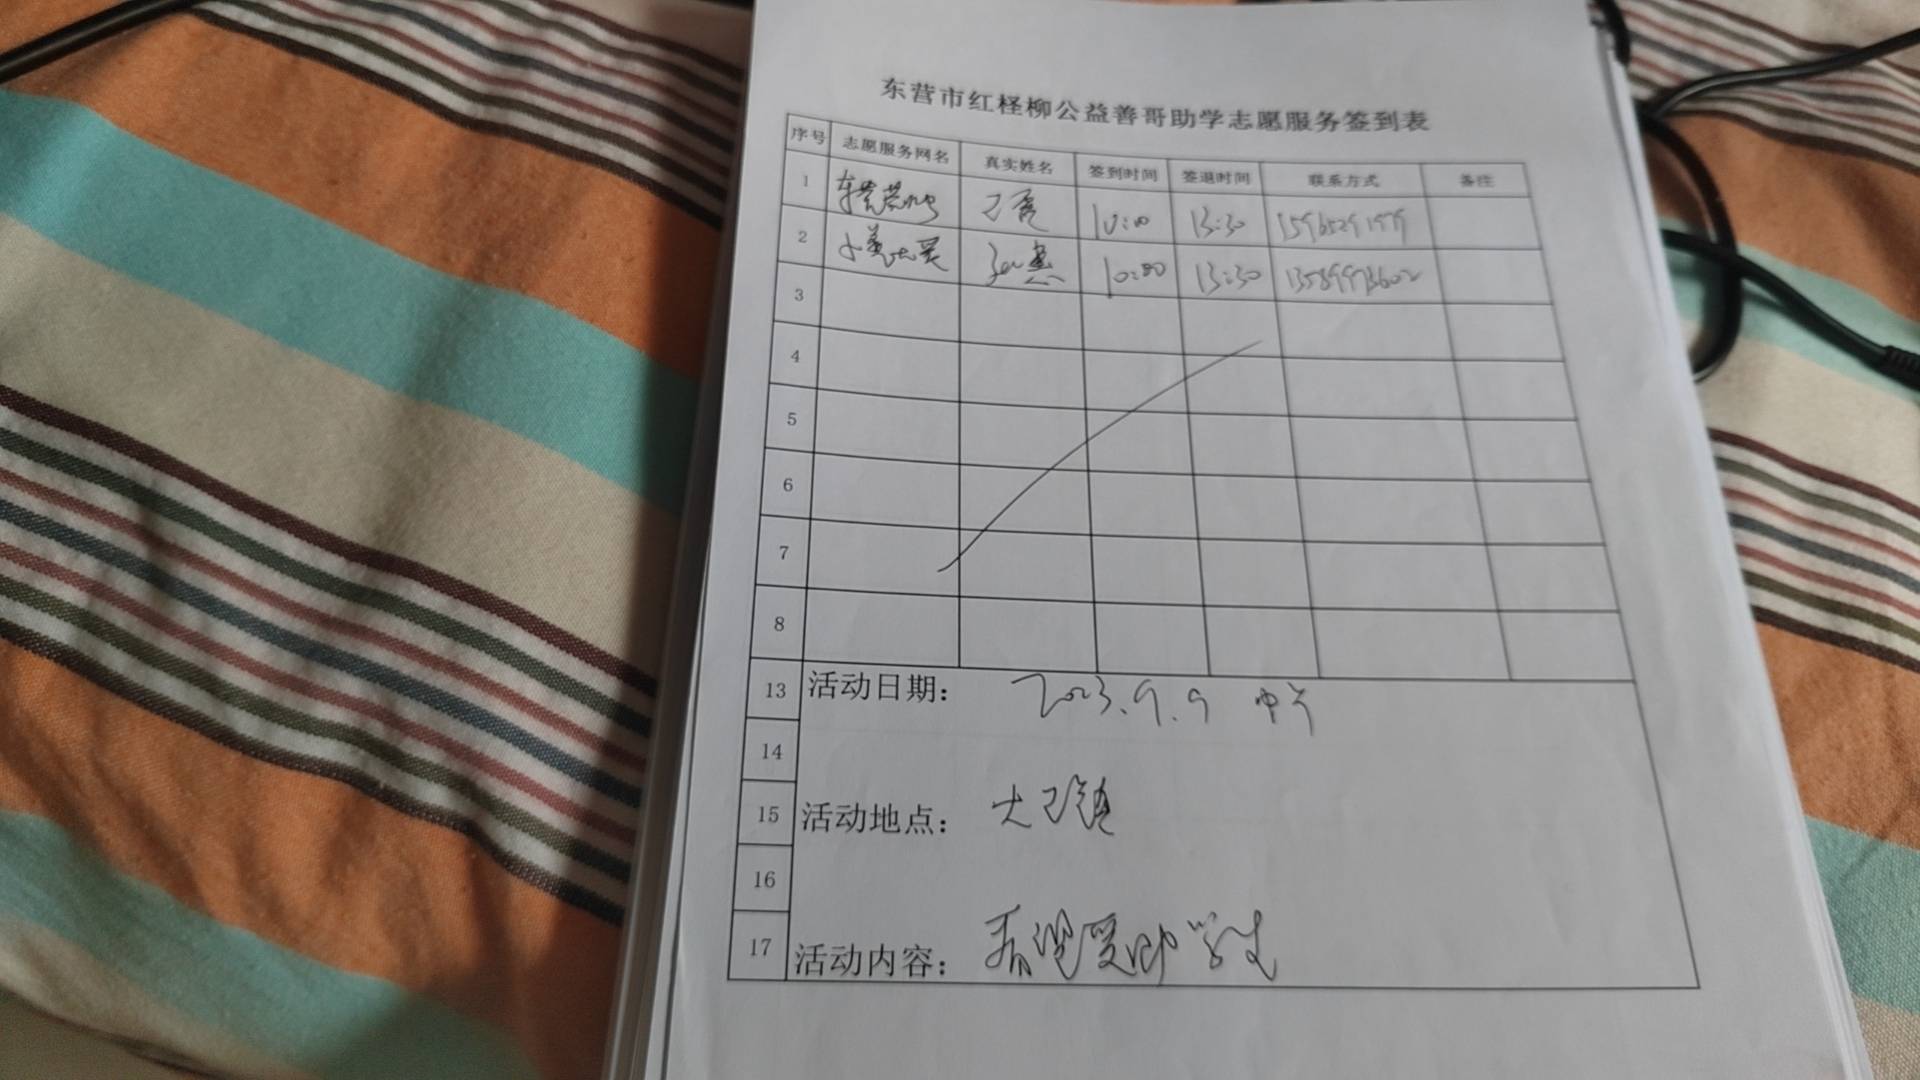 东营市红柽柳公益善哥助学志愿服务签到表
序号 志愿服务网名 真实姓名 签到时间 签退时间 联系方式 备注
1 10:00 13:30
2 10:00 13:30
3
4
5
6
7
8
13 活动日期： 2023.9.9 中午
14
15 活动地点：
16
17 活动内容： 看望受助学生